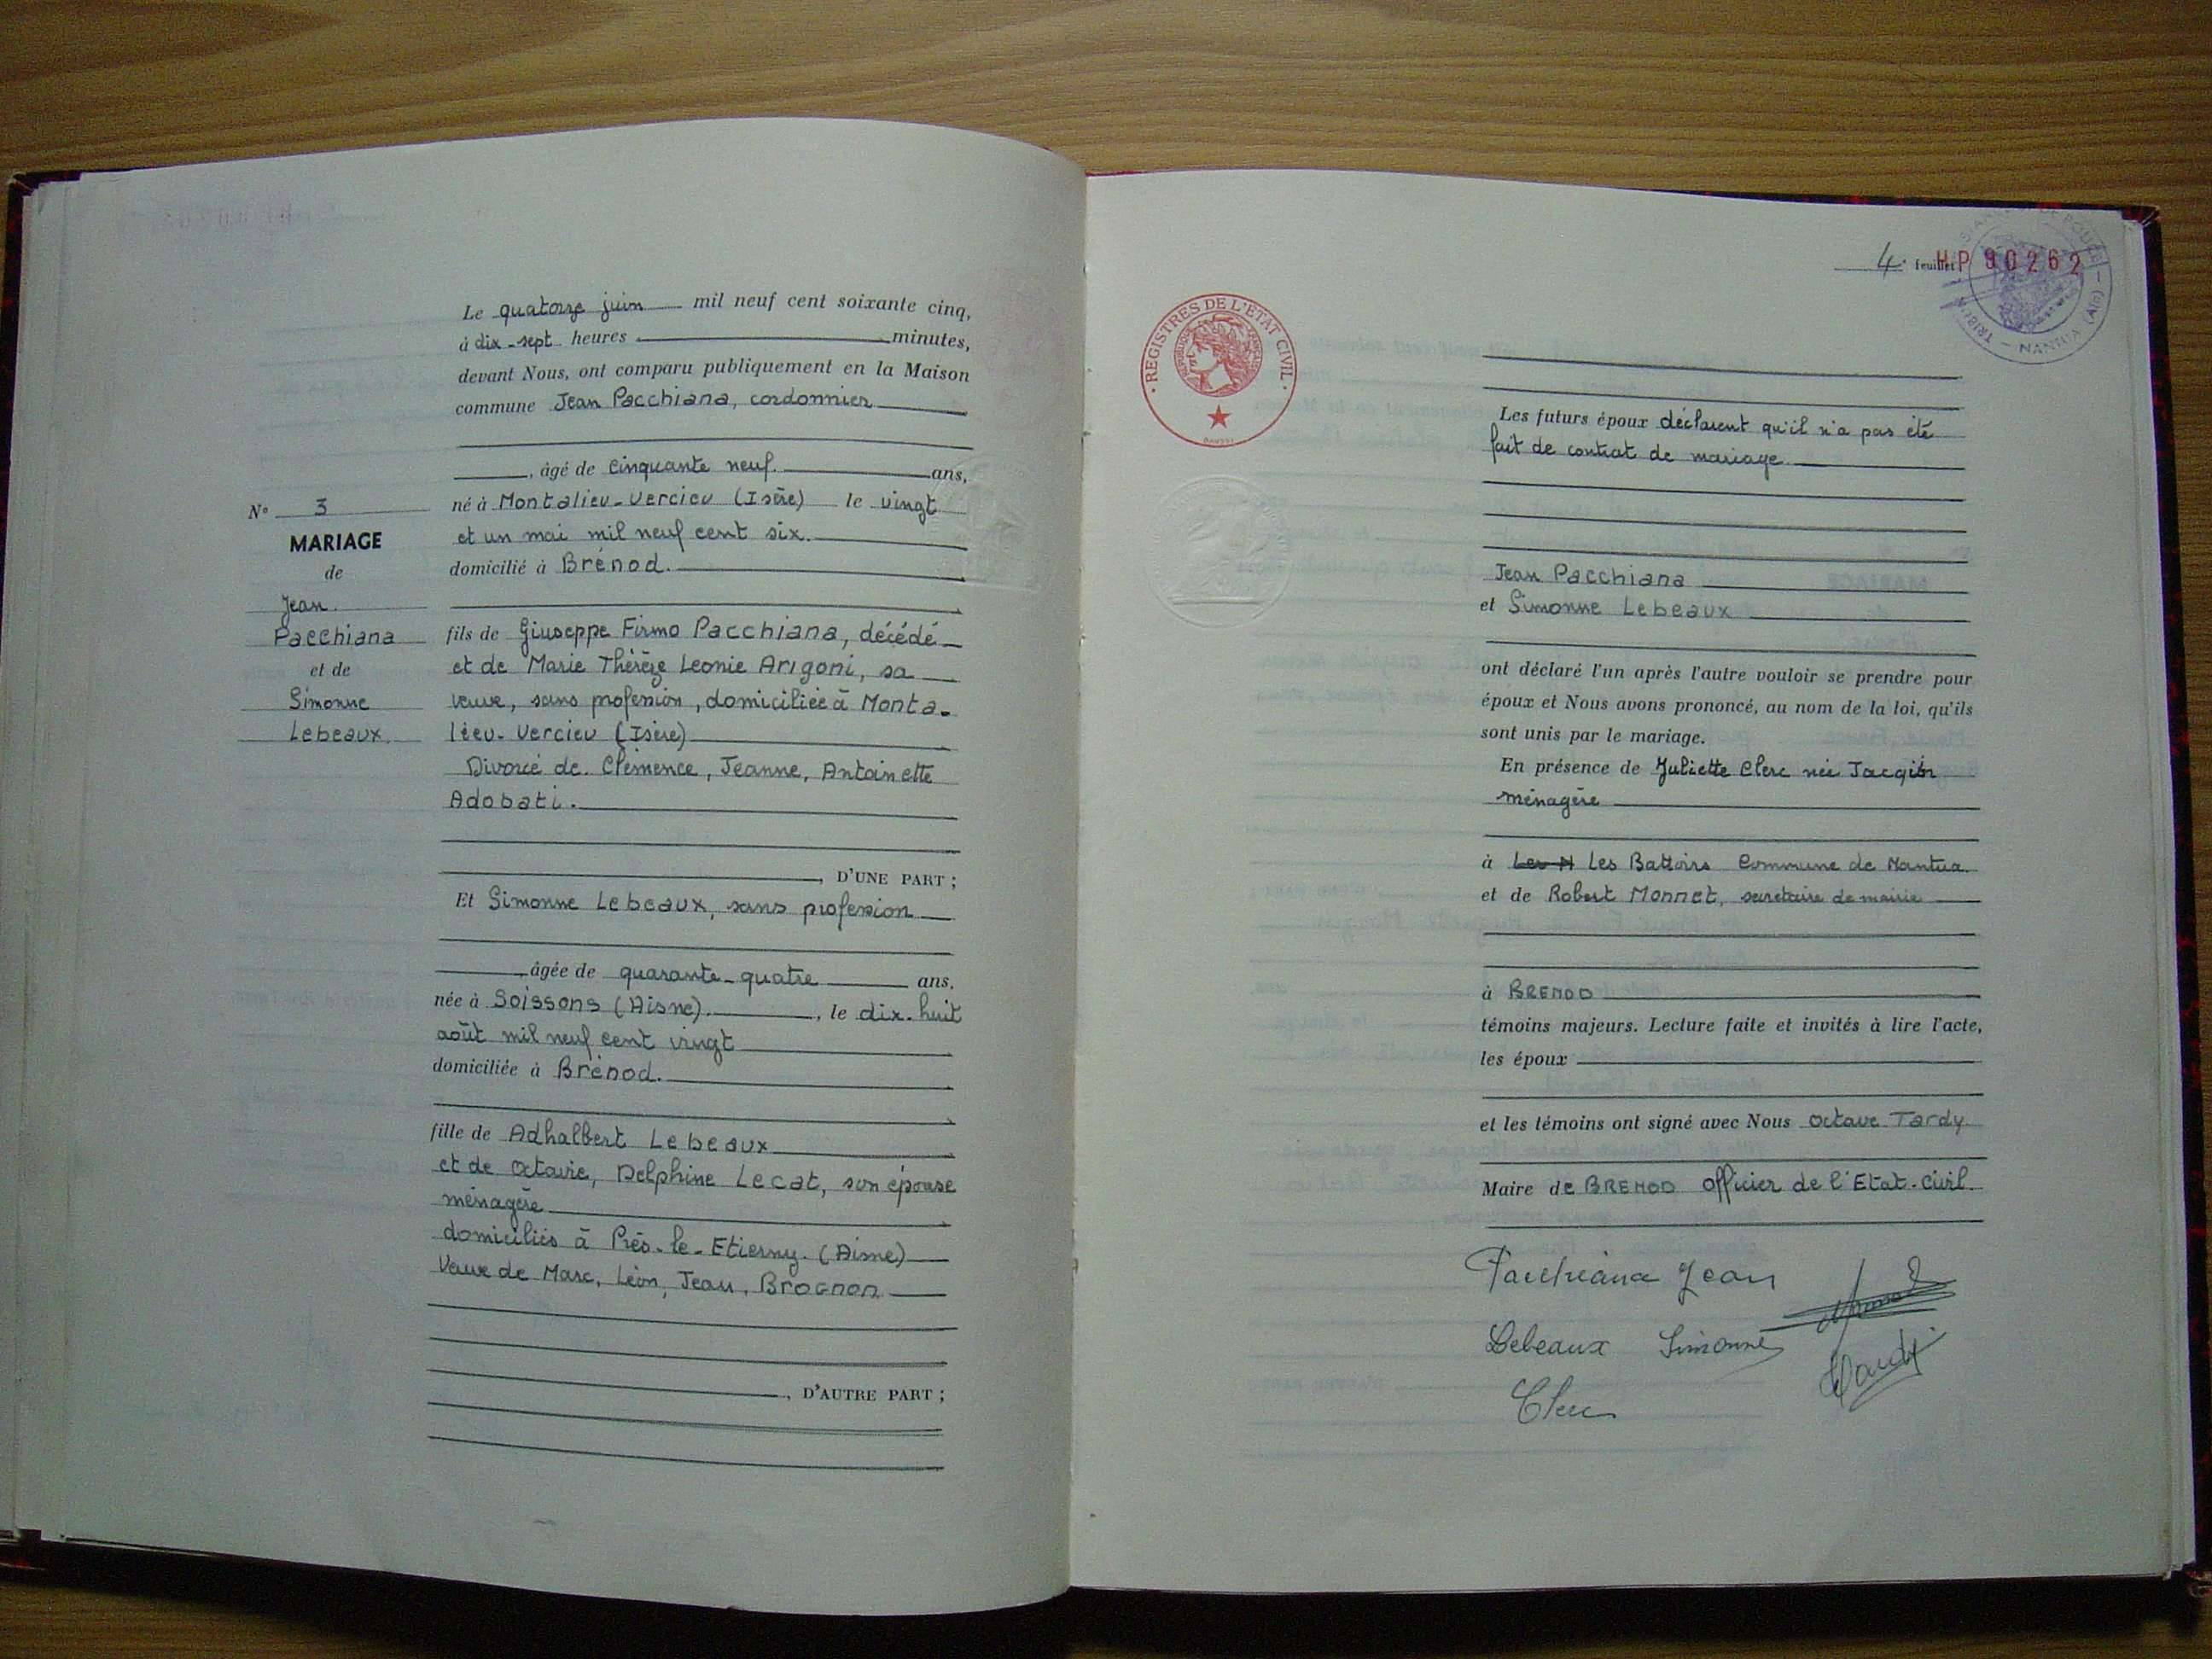 Le quatorze juin mil neuf cent soixante cinq,
à dix-sept heures minutes,
devant Nous, ont comparu publiquement en la Maison
commune Jean Pacchiana, cordonnier
, âgé de cinquante neuf. ans,
né à Montalieu-Vercieu (Isère) le vingt
et un mai mil neuf cent six.
domicilié à Brénod.
fils de Giuseppe Firmo Pacchiana, décédé
et de Marie Thérèze Leonie Arigoni, sa
veuve, sans profession, domiciliée à Monta-
lieu-Vercieu (Isère)
Divorcé de Clémence, Jeanne, Antoinette
Adobati.
, D'UNE PART ;
Et Simonne Lebeaux, sans profession
, âgée de quarante-quatre ans,
née à Soissons (Aisne). , le dix-huit
août mil neuf cent vingt
domiciliée à Brénod.
fille de Adhalbert Lebeaux
et de Octavie, Delphine Lecat, son épouse
ménagère
domiciliés à Prés-le-Etierny. (Aisne)
Veuve de Marc, Léon, Jean, Brognon
, D'AUTRE PART ;
N° 3
MARIAGE
de
Jean
Pacchiana
et de
Simonne
Lebeaux.
4e feuillet
HP 90262
NANTUA (Ain)
REGISTRES DE L'ETAT CIVIL
Les futurs époux déclarent qu'il n'a pas été
fait de contrat de mariage.
Jean Pacchiana
et Simonne Lebeaux
ont déclaré l'un après l'autre vouloir se prendre pour
époux et Nous avons prononcé, au nom de la loi, qu'ils
sont unis par le mariage.
En présence de Juliette Clerc née
ménagère
à Les Battoirs Commune de Nantua.
et de Robert Monnet, secrétaire de mairie
à BRENOD
témoins majeurs. Lecture faite et invités à lire l'acte,
les époux
et les témoins ont signé avec Nous Octave Tardy.
Maire de BRENOD Officier de l'Etat-Civil.
Pacchiana Jean
Lebeaux Simonne
Clerc
Tardy